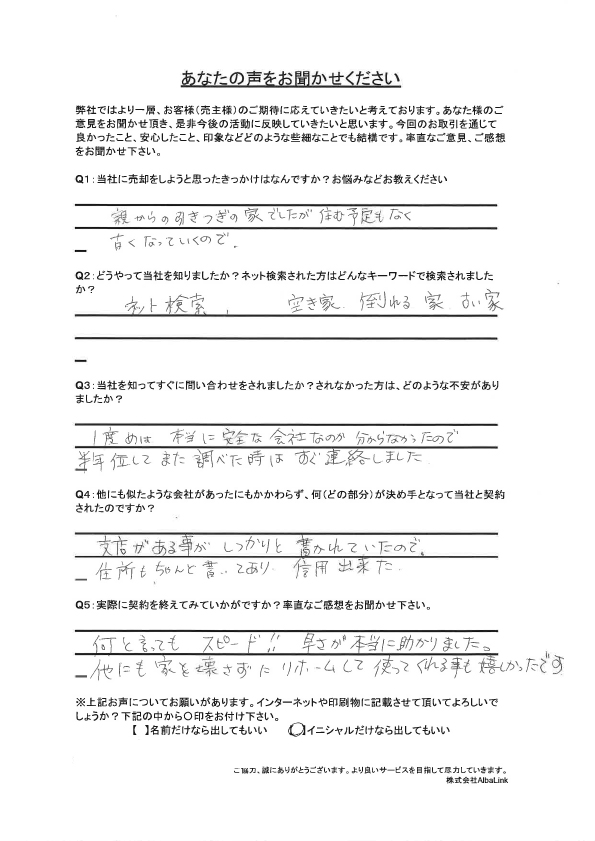 あなたの声をお聞かせください
弊社ではより一層、お客様(売主様)のご期待に応えていきたいと考えております。あなた様のご
意見をお聞かせ頂き、是非今後の活動に反映していきたいと思います。今回のお取引を通じて
良かったこと、安心したこと、印象などどのような些細なことでも結構です。率直なご意見、ご感想
をお聞かせ下さい。
Q1:当社に売却をしようと思ったきっかけはなんですか?お悩みなどお教えください
親からの引きつぎの家でしたが住む予定もなく
古くなっていくので。
Q2:どうやって当社を知りましたか?ネット検索された方はどんなキーワードで検索されました
か?
ネット検索、 空き家 倒れる 家 古い家
Q3:当社を知ってすぐに問い合わせをされましたか?されなかった方は、どのような不安があり
ましたか?
1度めは 本当に安全な会社なのか分からなかったので
半年位してまた調べた時はすぐ連絡しました
Q4:他にも似たような会社があったにもかかわらず、何(どの部分)が決め手となって当社と契約
されたのですか?
支店がある事がしっかりと書かれていたので。
住所もちゃんと書いてあり 信用出来た
Q5:実際に契約を終えてみていかがですか?率直なご感想をお聞かせ下さい。
何と言っても スピード!! 早さが本当に助かりました。
他にも家を壊さずにリホームして使ってくれる事も嬉しかったです
※上記お声についてお願いがあります。インターネットや印刷物に記載させて頂いてよろしいで
しょうか?下記の中から〇印をお付け下さい。
【 】名前だけなら出してもいい 【〇】イニシャルだけなら出してもいい
ご協力、誠にありがとうございます。より良いサービスを目指して尽力していきます。
株式会社AlbaLink